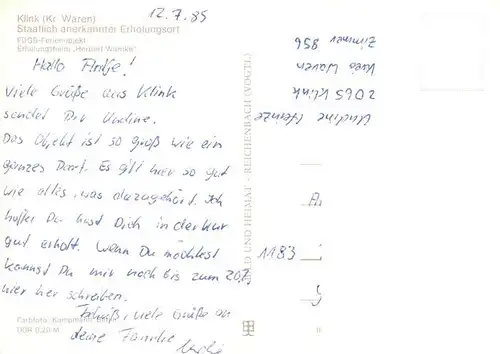 Klink (Kr. Waren)
Staatlich anerkannter Erholungsort
FDGB-Ferienobjekt
Erholungsheim „Herbert Warnke“
12.7.85
Hallo Antje!
Viele Grüße aus Klink
sendet Dir Undine.
Das Objekt ist so groß wie ein
ganzes Dorf. Es gibt hier so gut
wie alles, was dazugehört. Ich
hoffe Du hast Dich in der Kur
gut erholt. Wenn Du möchtest
kannst Du mir noch bis zum 20.7.
hier her schreiben.
Tschüß, viele Grüße an
deine Familie
Undine
Farbfoto: Kampmann
DDR 0,20 M
BILD UND HEIMAT · REICHENBACH (VOGTL)
Undine Heinze
2065 Klink
Kreis Waren
Zimmer 856
1183